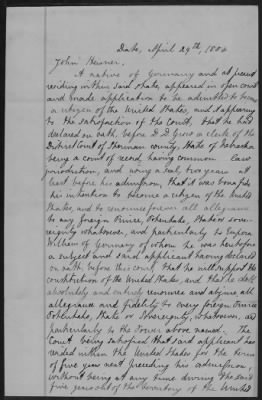 Date, April 29th, 1884
John Heisner.
A native of Germany and at present
residing within said State, appeared in open court
and made application to be admitted to become
a citizen of the United States, and it appearing
to the satisfaction of the Court, that he had
declared on oath, before D. D. Grow a clerk of the
District Court of Sherman county, State of Nebraska
being a court of record, having common law
jurisdiction, and using a seal, two years at
least before his admission, that it was bona fide
his intention to become a citizen of the United
States, and to renounce forever all allegiance
to any foreign Prince, Potentate, State or sove-
reignty whatsoever, and particularly to Emperor
William of Germany of whom he was heretofore
a subject and said applicant having declared
on oath, before this court, that he will support the
constitution of the United States, and that he doth
absolutely and entirely renounce and abjure all
allegiance and fidelity to every foreign Prince
Potentate, State or Sovereignty, whatsoever, and
particularly to the Power above named. The
Court being satisfied that said applicant has
resided within the United States for the term
of five years next preceding his admission,
without being at any time during the said
five years out of the territory of the United